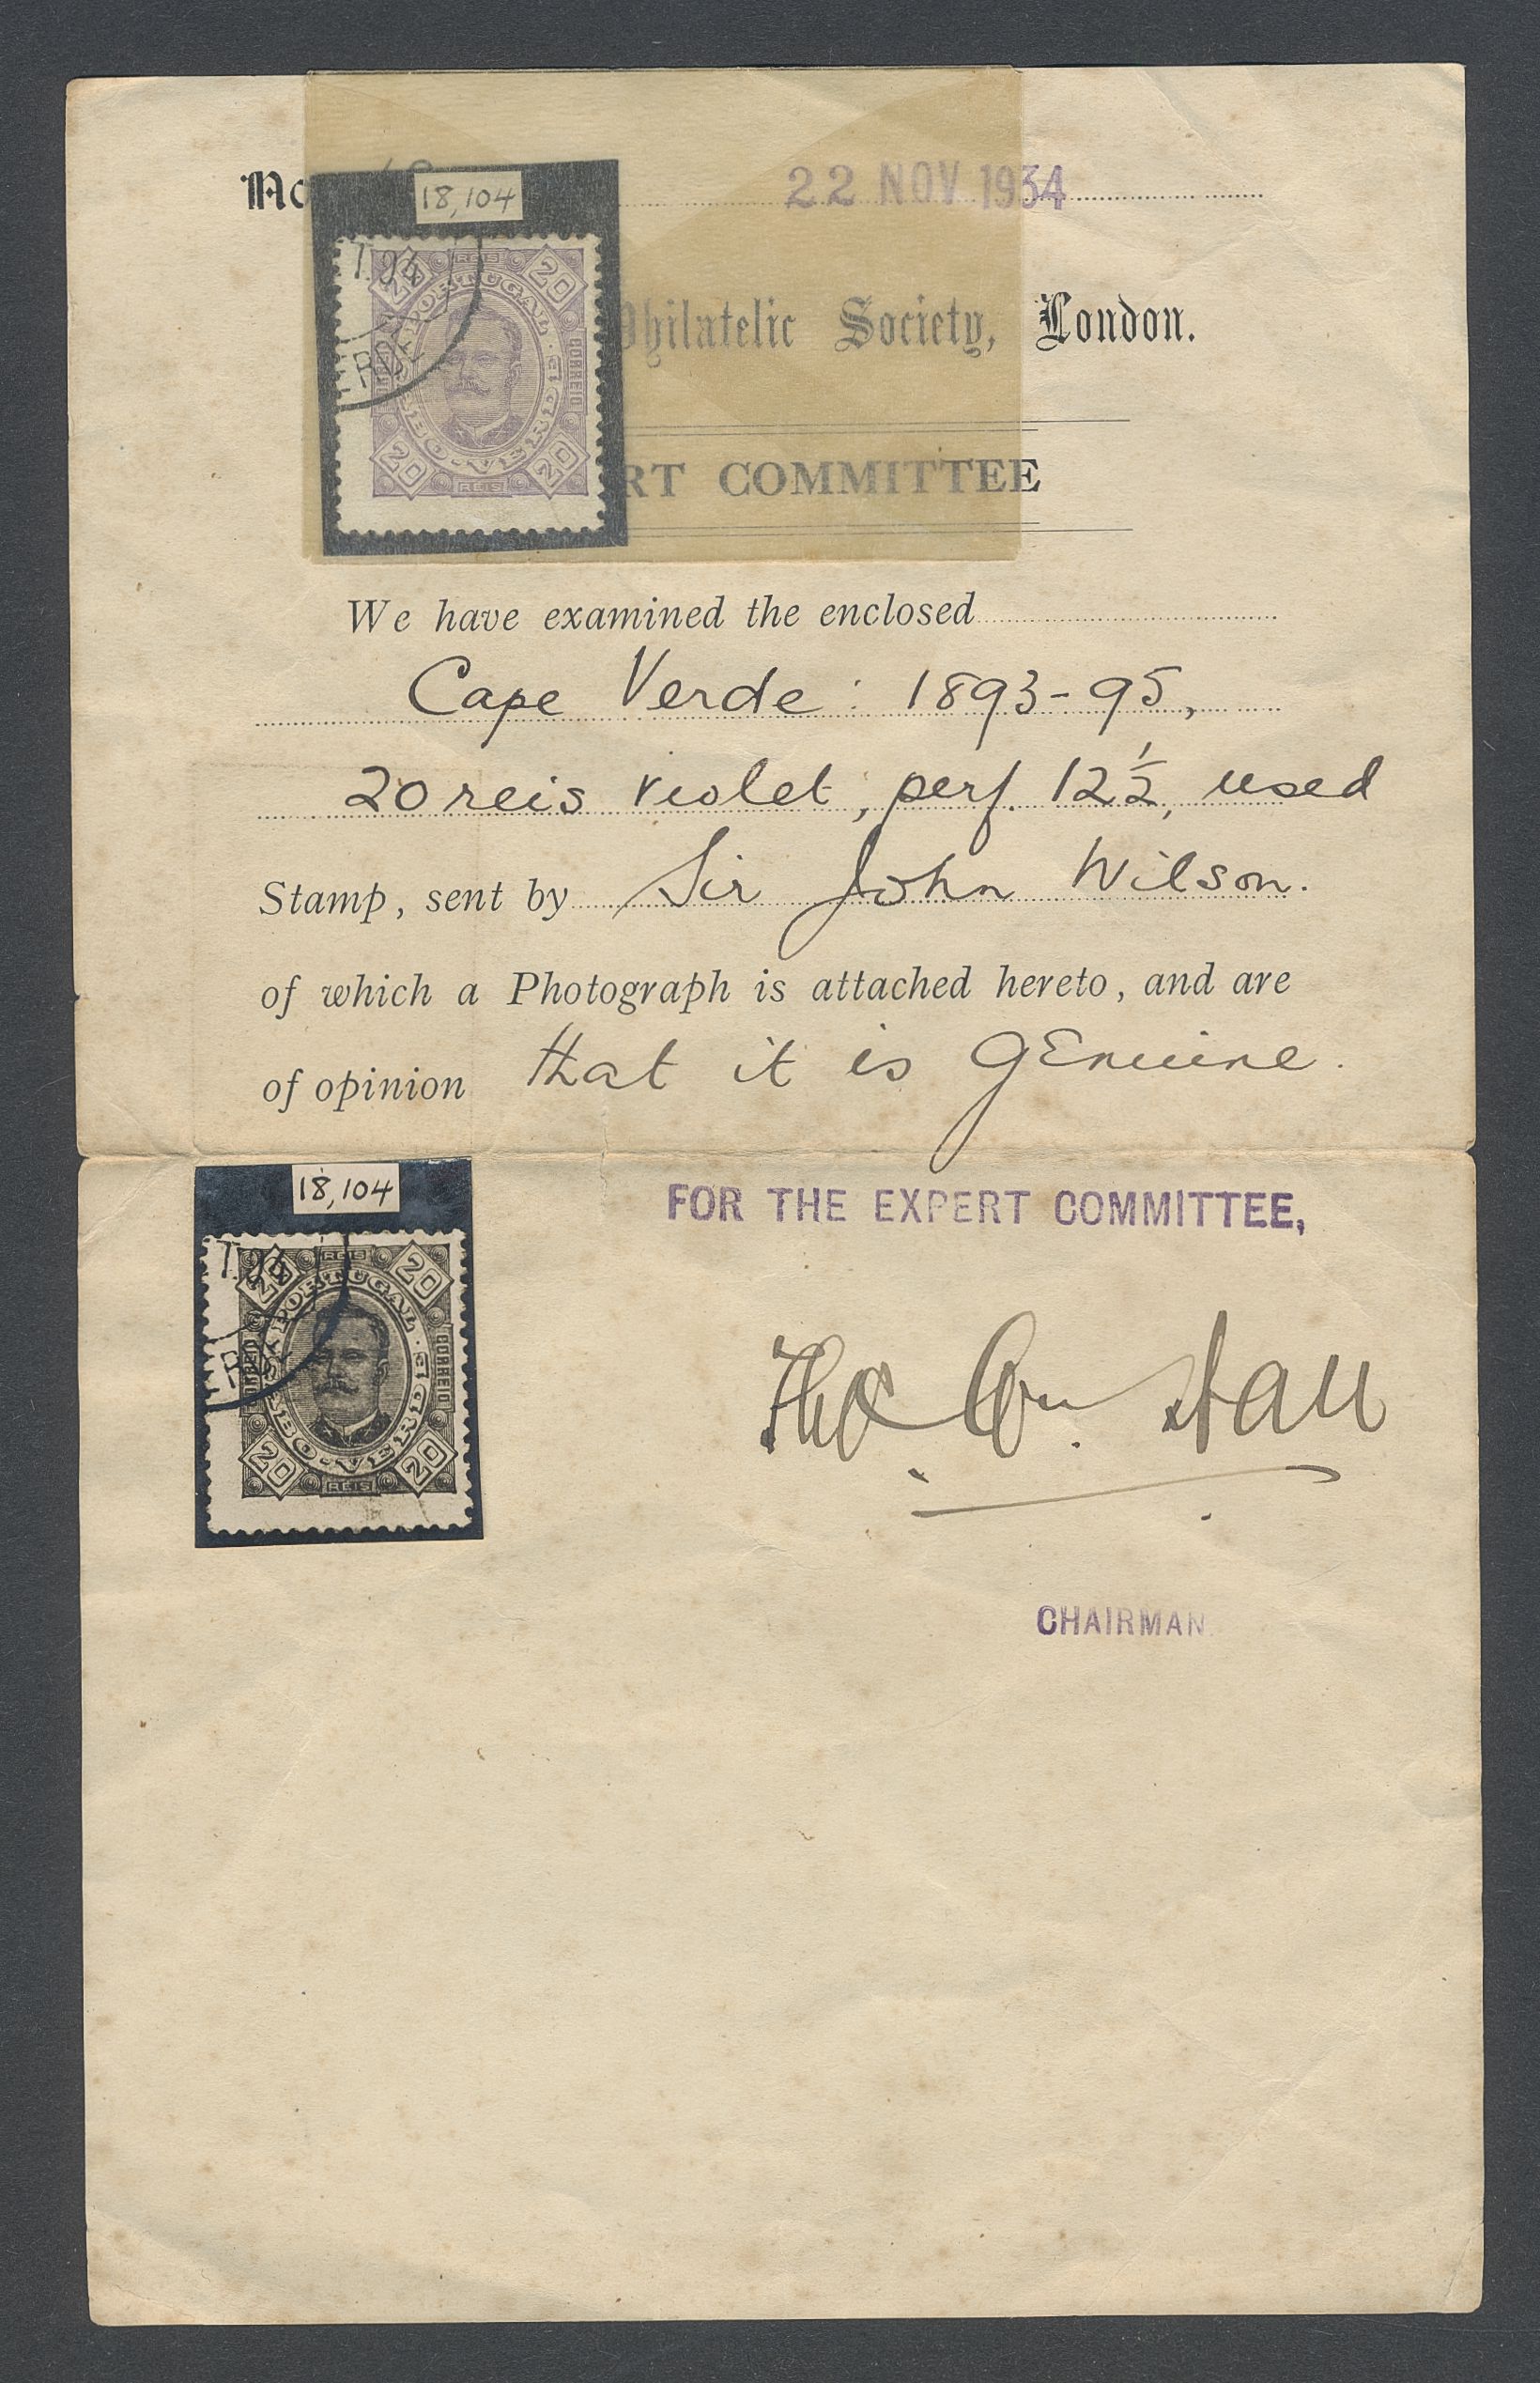 No
22 NOV 1934
18,104
1.94
REIS
20 20
PORTUGAL
CORREIO
RDE
BO-VERDE
20 20
REIS
Philatelic Society, London.
RT COMMITTEE
We have examined the enclosed
Cape Verde: 1893-95,
20 reis violet, perf. 12½, used
Stamp, sent by Sir John Wilson.
of which a Photograph is attached hereto, and are
of opinion that it is genuine.
18,104
FOR THE EXPERT COMMITTEE,
REIS
20 20
PORTUGAL
CORREIO
BO-VERDE
20 20
REIS
Hall
CHAIRMAN.